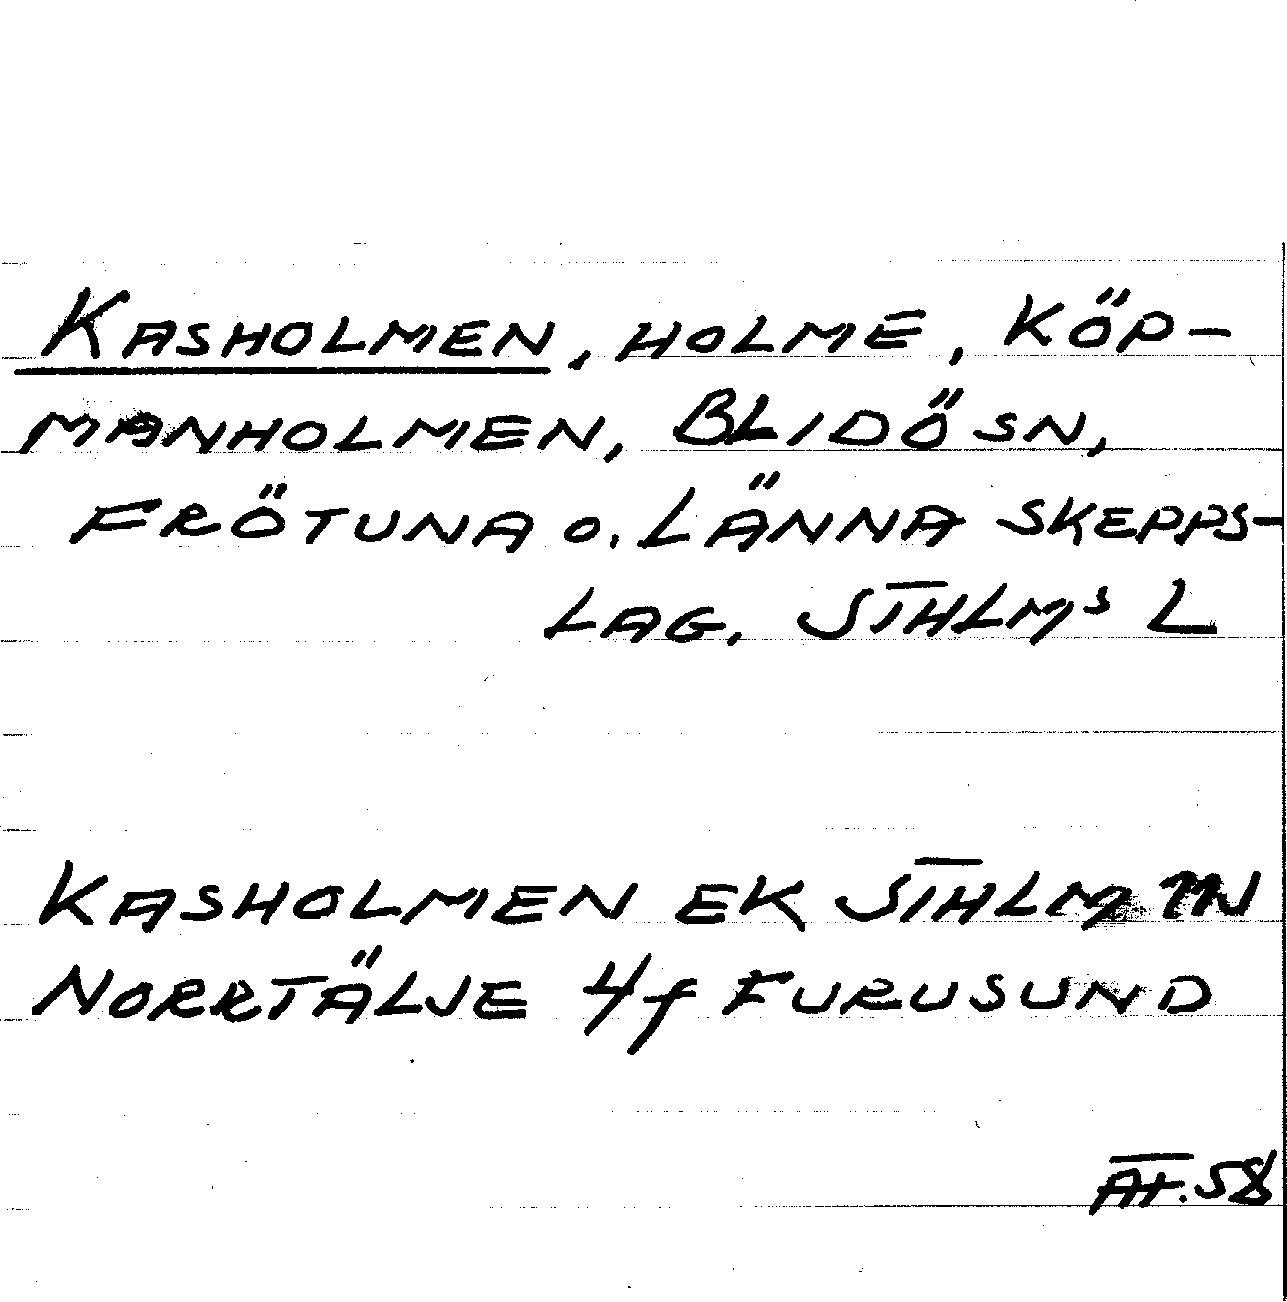 KASHOLMEN, HOLME, KÖP-
MANHOLMEN, BLIDÖ SN,
FRÖTUNA O. LÄNNA SKEPPS-
LAG, STHLMS L
KASHOLMEN EK STHLM
NORRTÄLJE 4f FURUSUND
58